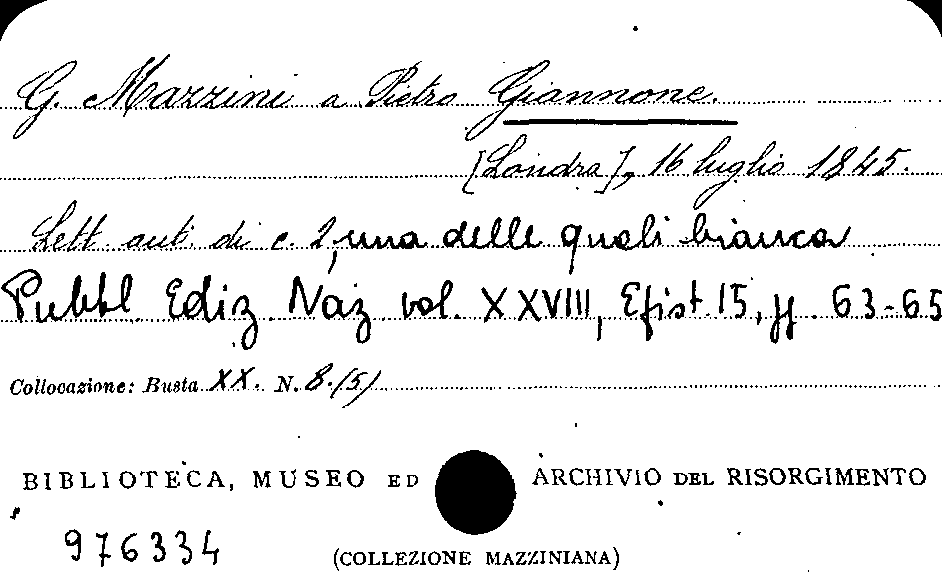 G. Mazzini a Pietro Giannone.
[Londra], 16 luglio 1845.
Lett. aut. di c. 2, una delle quali bianca
Pubbl Ediz. Naz vol. XXVIII, Epist. 15, pp. 63-65
Collocazione: Busta XX. N. 8.(5)
BIBLIOTECA, MUSEO ED ARCHIVIO DEL RISORGIMENTO
976334 (COLLEZIONE MAZZINIANA)